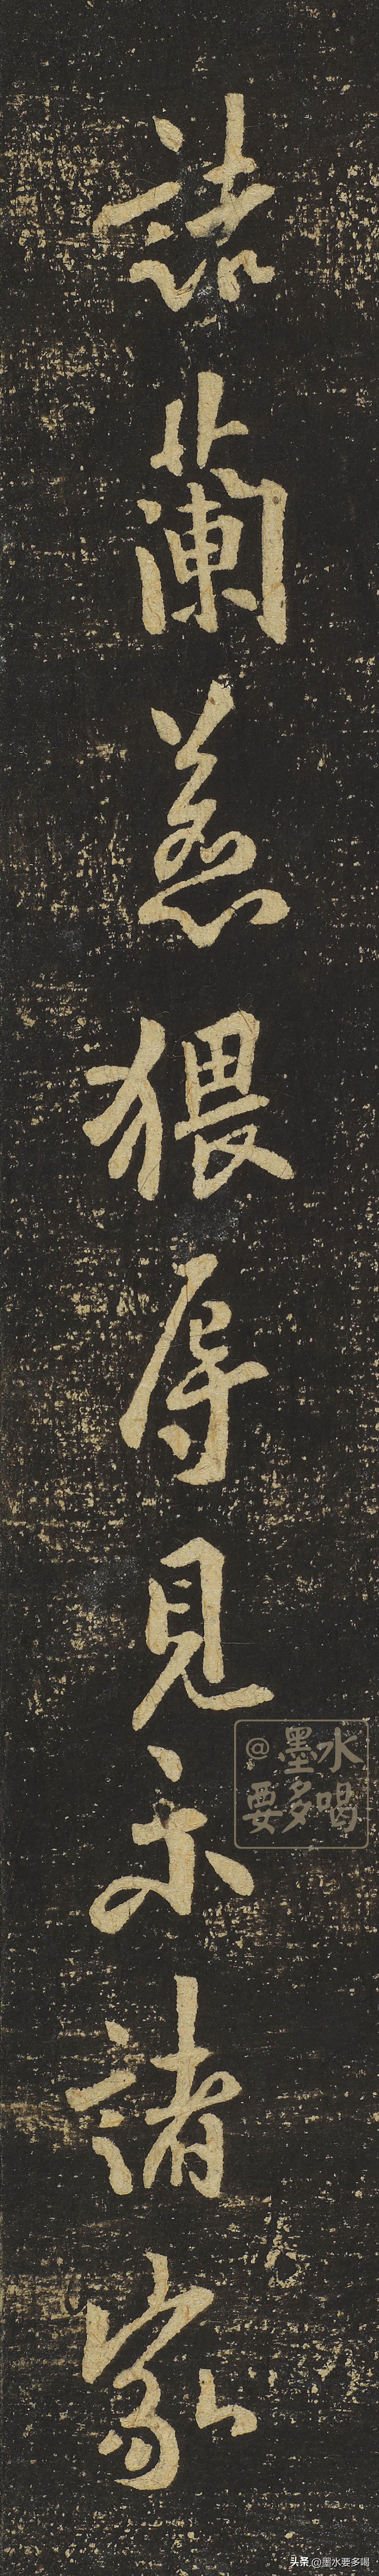 誌蘭慈猥辱見示諸家
@墨水
要多喝
头条 @墨水要多喝